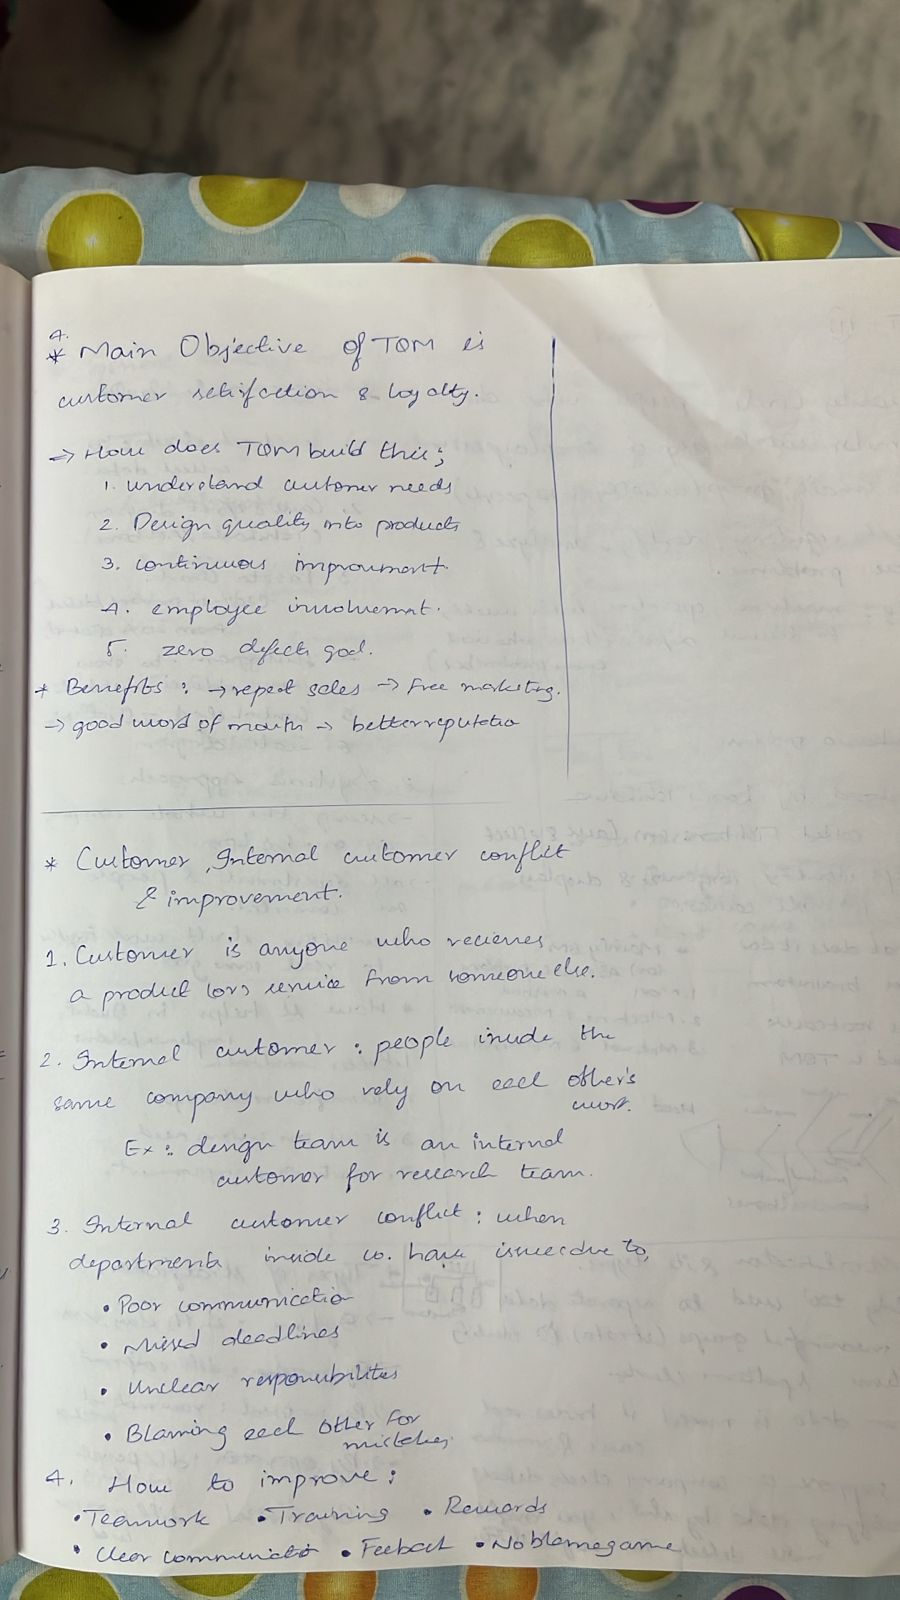 4.
* Main Objective of TQM is
customer setisfaction & loyalty.
⇒ How does TQM build this;
1. understand customer needs
2. Design quality into products
3. continuous improvment.
4. employee involvemnt.
5. zero defects goal.
* Benefits : → repeat sales → Free marketing.
→ good word of mouth → better reputatio
* Customer, Internal customer conflict
& improvement.
1. Customer is anyone who recieves
a product (or) service from someone else.
2. Internal customer : people inside the
same company who rely on each other's
work.
Ex : design team is an internal
customer for research team.
3. Internal customer conflict : when
departments inside co. have issues due to,
• Poor communicatio
• Missed deadlines
• Unclear responsibilities
• Blaming each other for
mistakes.
4. How to improve :
• Teamwork • Training • Rewards
• Clear communicatio • Feeback • No blame game